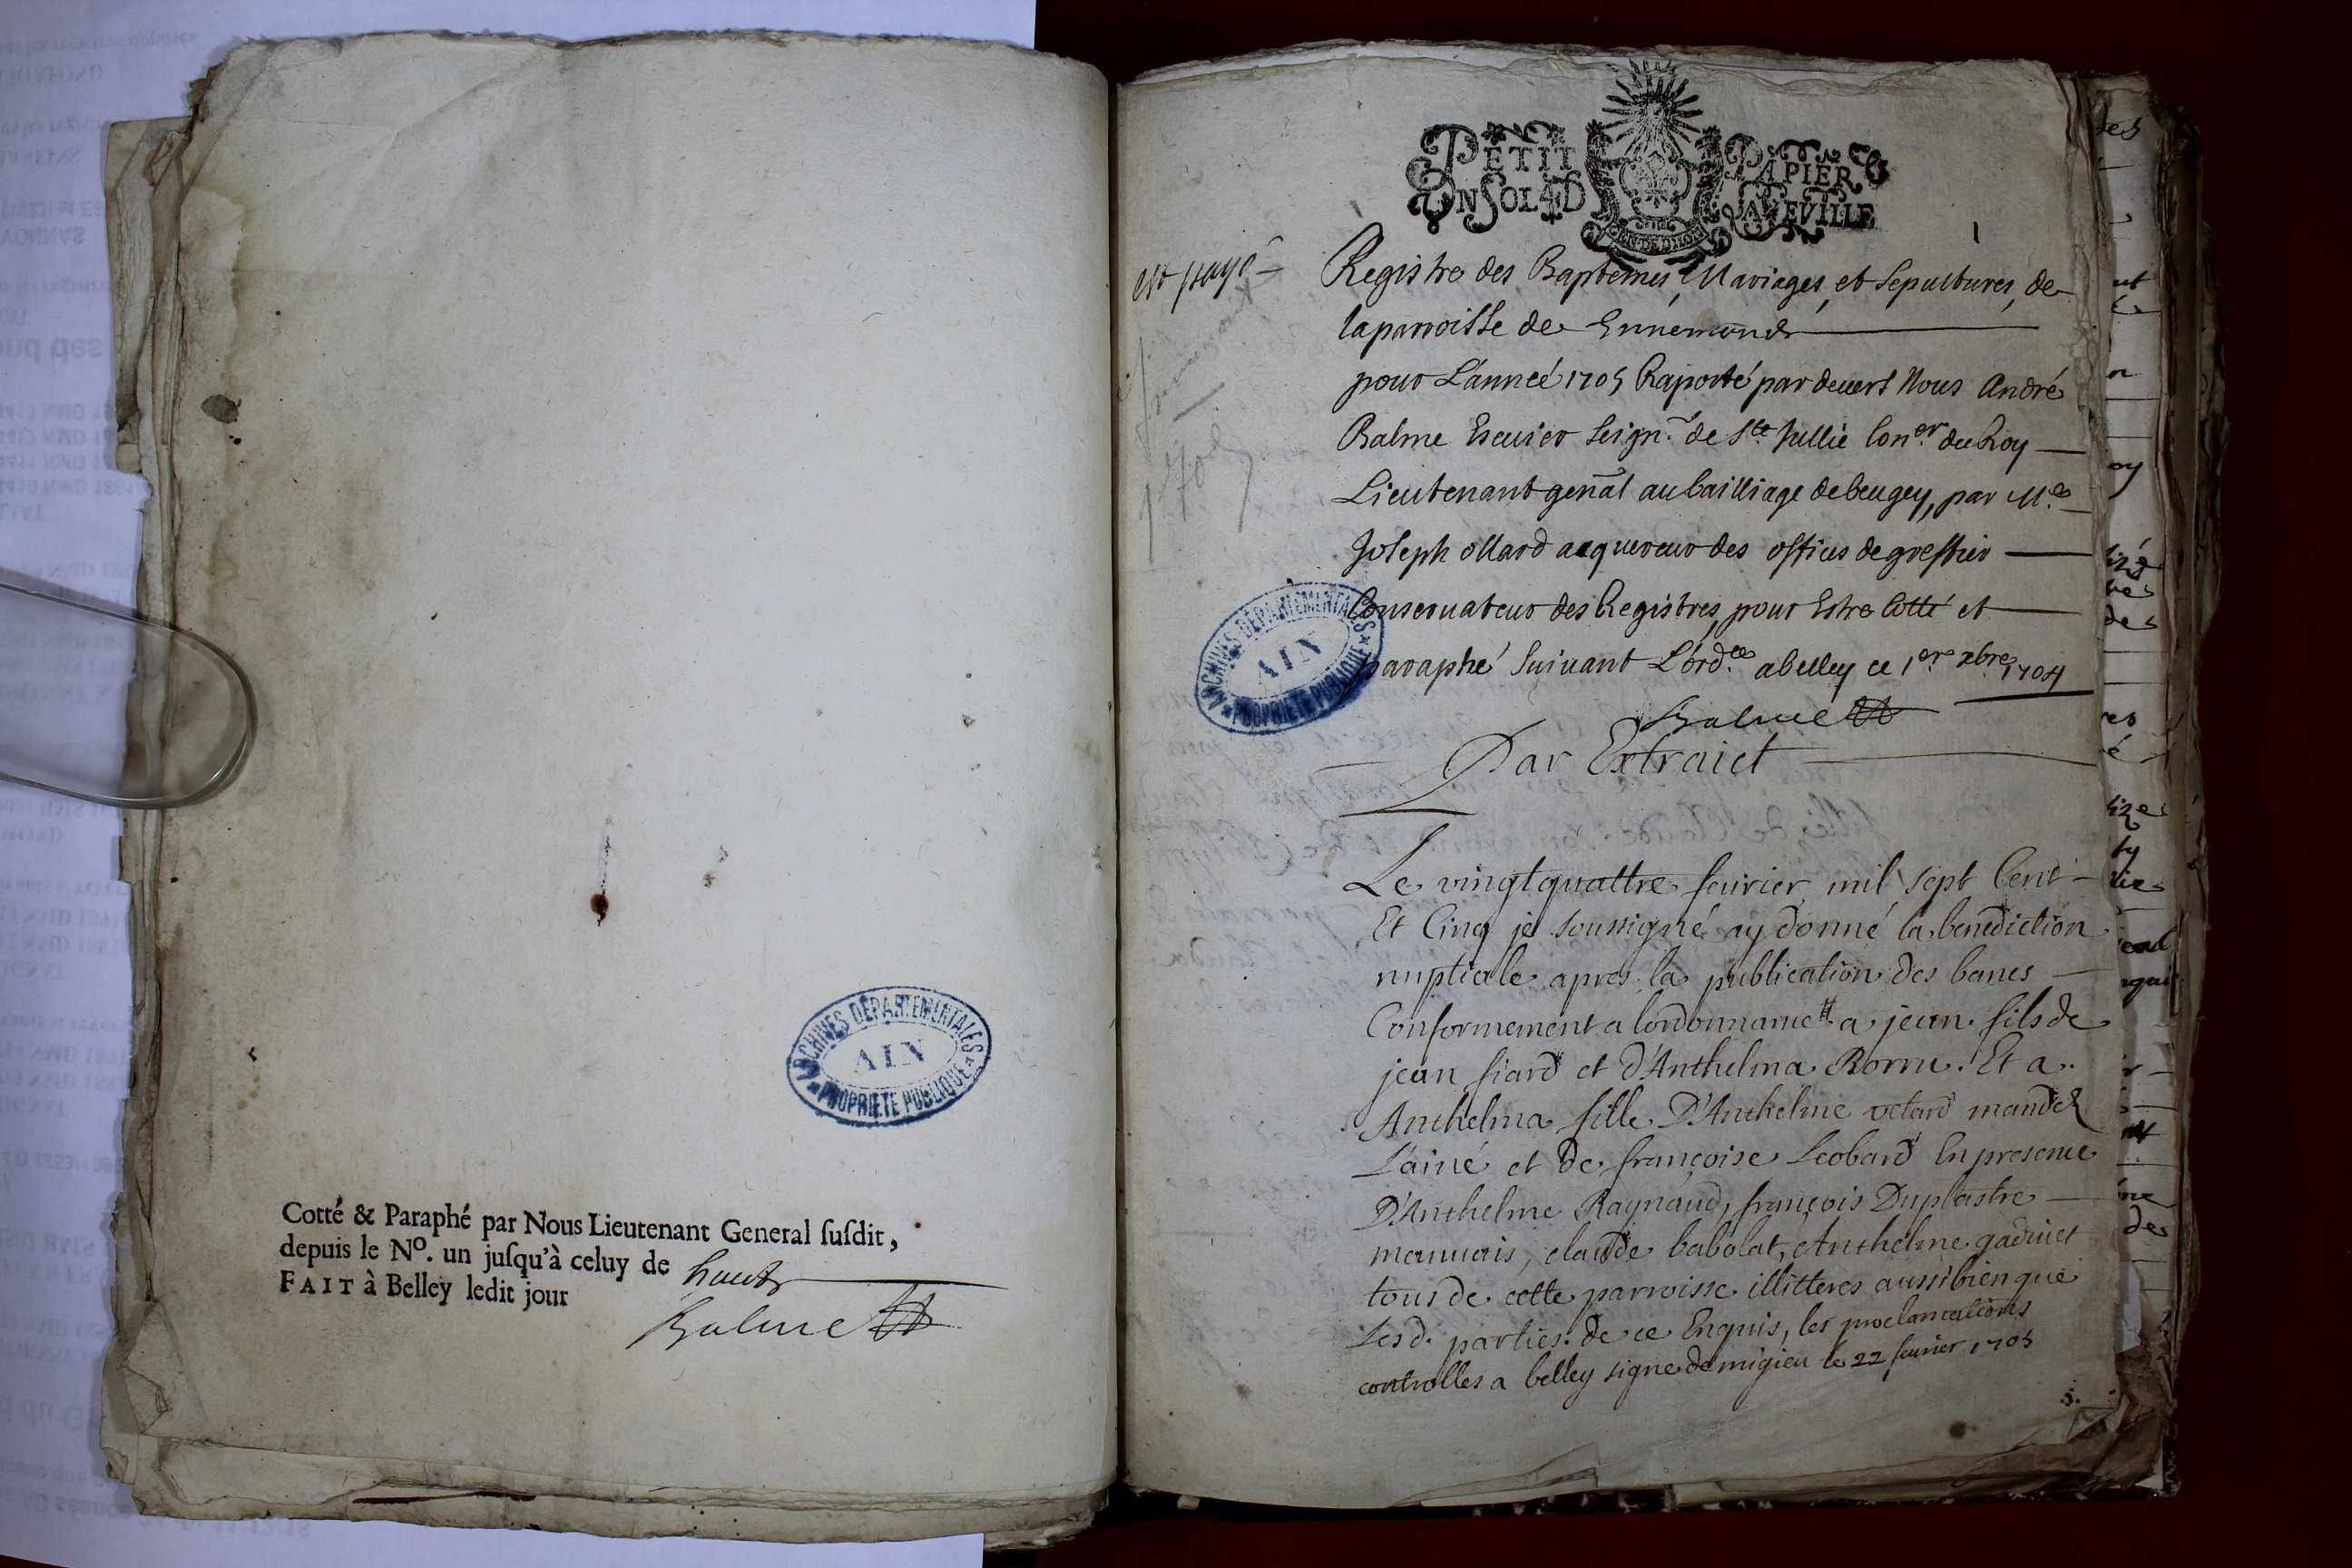 Cotté & Paraphé par Nous Lieutenant General susdit,
depuis le N°. un jusqu'à celuy de huict
FAIT à Belley ledit jour
Balme
ARCHIVES DÉPARTEMENTALES
AIN
PROPRIETE PUBLIQUE
PETIT PAPIER
UN SOL 4 D LA FEVILLE
GEN. DE DIION
1
est payé
Registre des Baptemes, Mariages, et Sepultures, de
la parroisse de Ennemond
pour L'anneé 1705 Raporté par devers Nous André
Balme Escuier Seign.r de Ste Jullie Con.er du Roy
Lieutenant genãl au bailliage de beugey, par Me
Joseph ollard acquereur des offices de greffier
Conservateur des Registres, pour Estre Cotté et
paraphé Suivant L'ord.ce a belley ce 1.er xbre 1704
Balme
1705
ARCHIVES DÉPARTEMENTALES
AIN
PROPRIETE PUBLIQUE
Par Extraict
Le vingtquattre feuvrier mil sept Cent
Et Cinq je soussigné ay donné la benediction
nuptiale apres la publication des bancs
Conformement a lordonnance a jean fils de
jean fiard et d'Anthelma Borru. Et a
Anthelma fille D'Anthelme vetard mandet
L'ainé et de françoise Leobard En presence
D'Anthelme Raynaud, françois Duplastre
mauvais, claude babolat, Anthelme gaduict
tous de cette parroisse illitteres aussi bien que
Lesd. parties. de ce Enquis, les proclamations
controlles a belley signe de migieu le 22 fevrier 1705